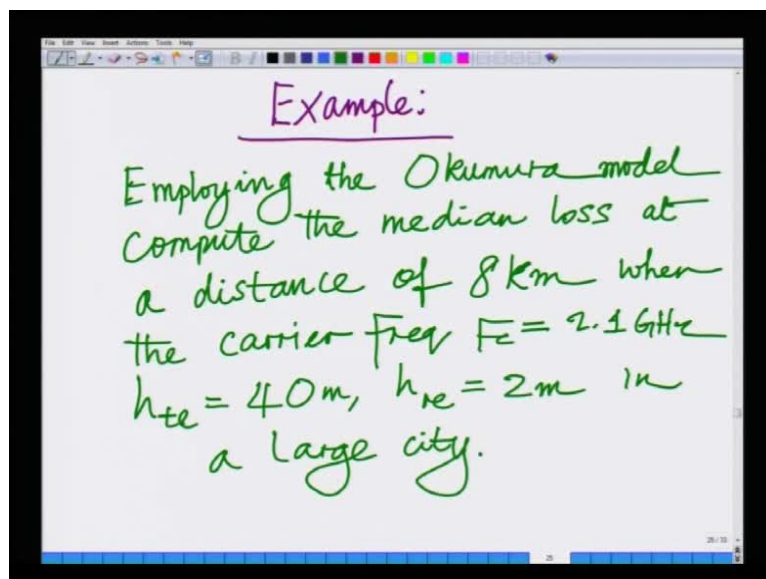 File Edit View Insert Actions Tools Help
Example:
Employing the Okumura model
compute the median loss at
a distance of 8km when
the carrier freq Fc = 2.1 GHz
hte = 40m, hre = 2m in
a large city.
25/33
25